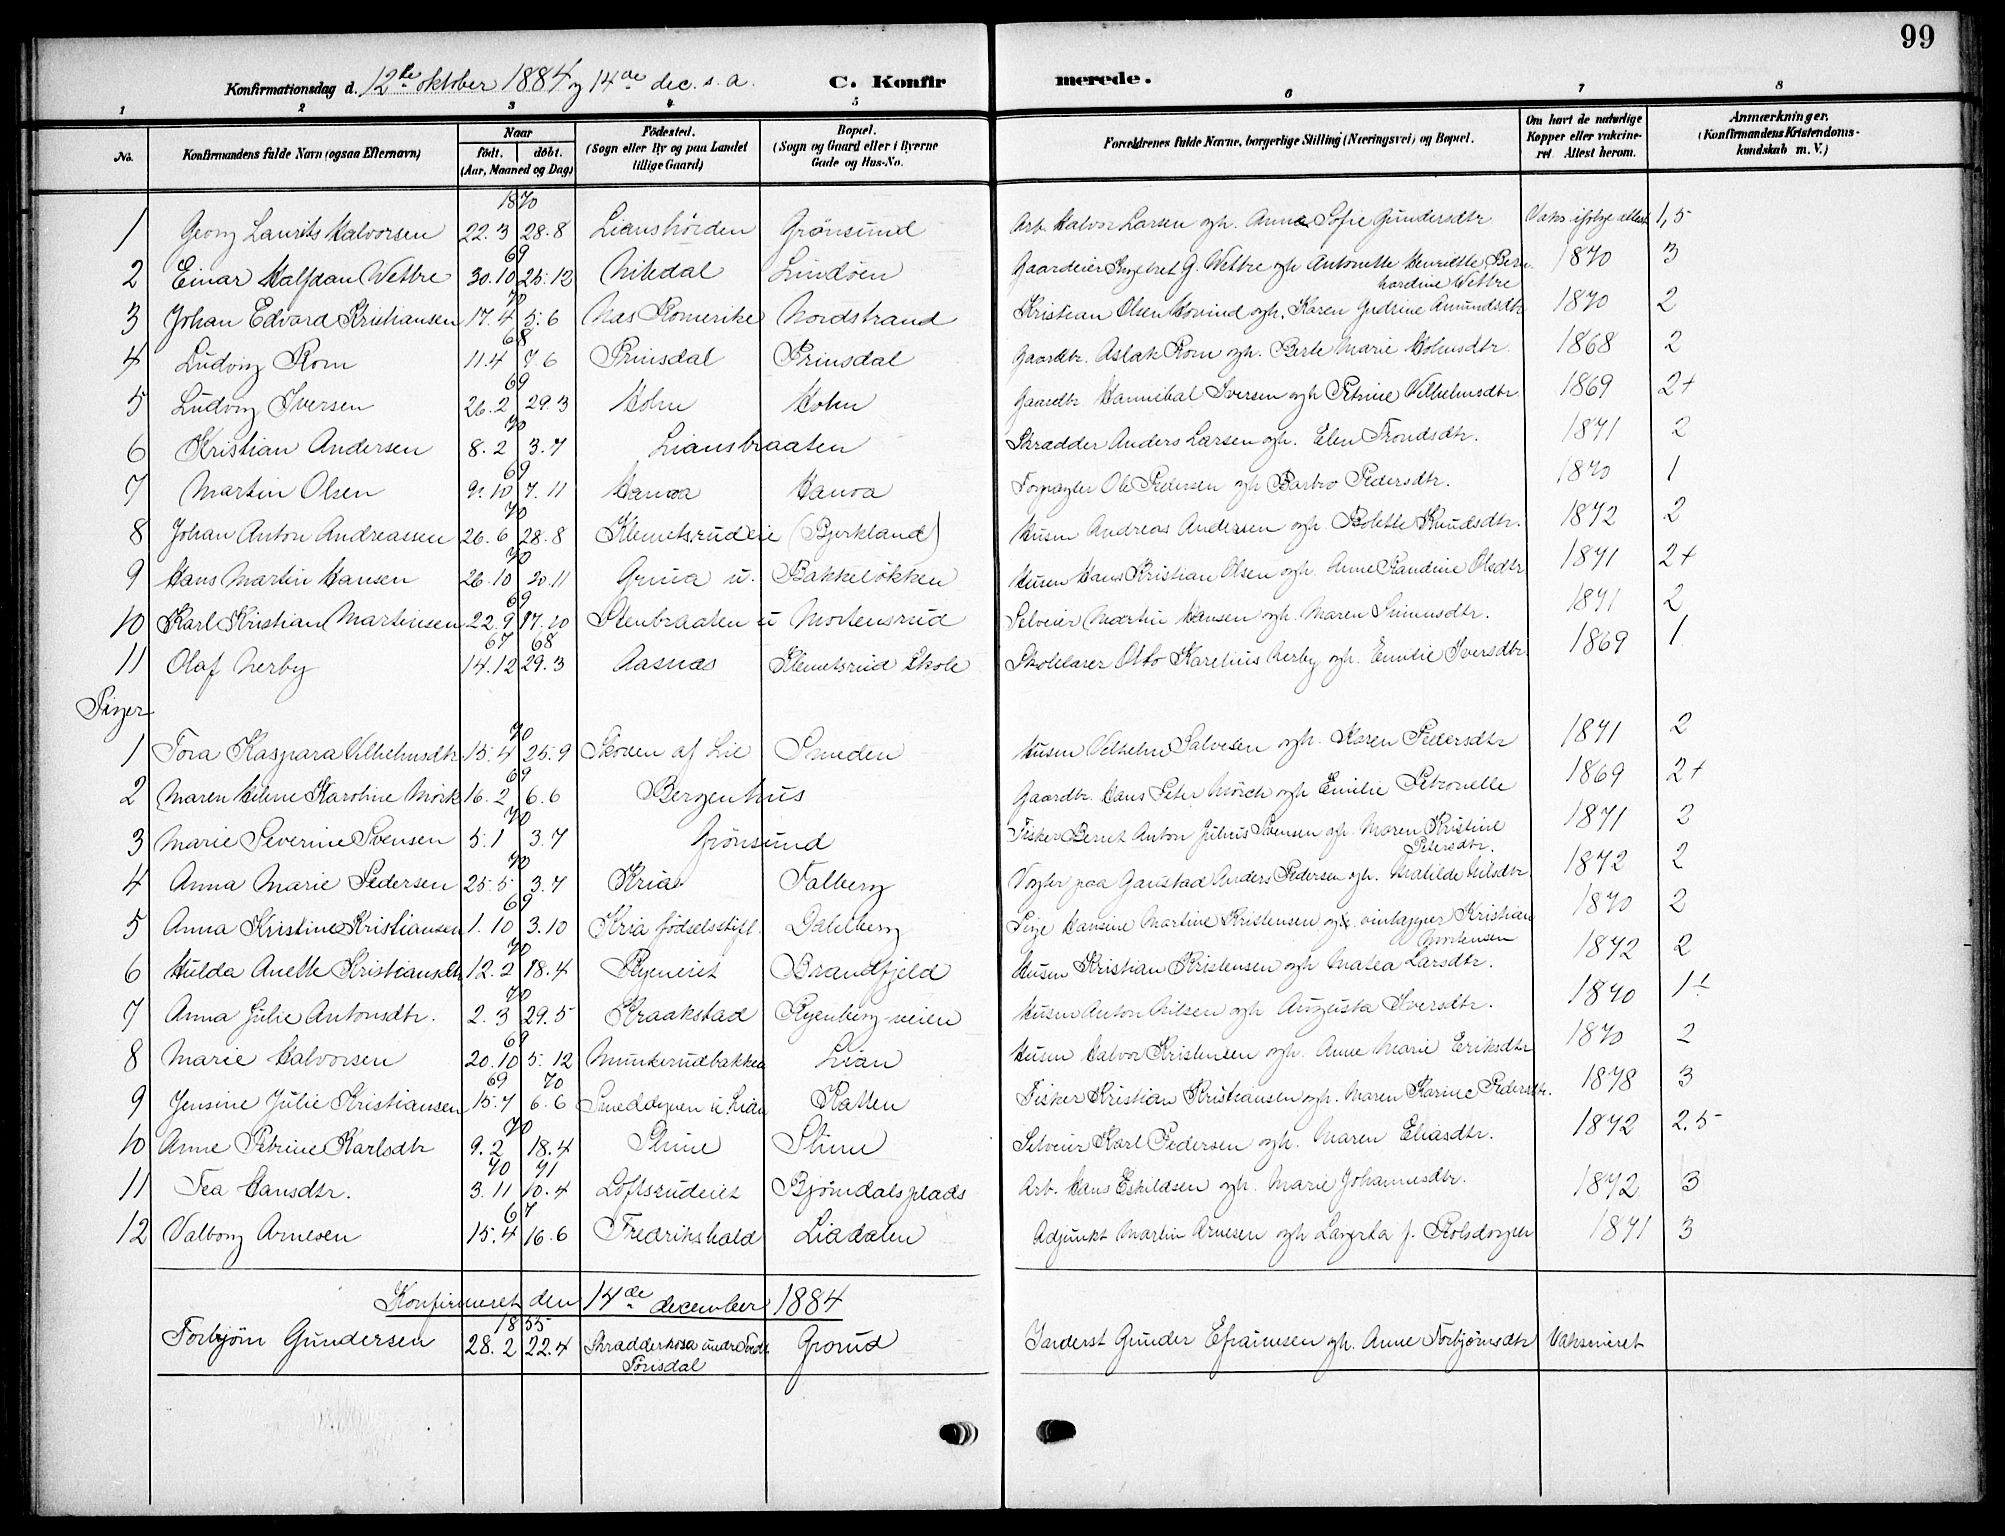 99
Konfirmationsdag d. 12te oktober 1884 og 14de dec. s. a. C. Konfirmerede.
1 2 3 4 5 6 7 8
No. Konfirmandens fulde Navn (ogsaa Efternavn) Naar født. døbt. (Aar, Maaned og Dag) Fødested. (Sogn eller By og paa Landet tillige Gaard) Bopæl. (Sogn og Gaard eller i Byerne Gade og Hus-No. Forældrenes fulde Navne, borgerlige Stilling (Næringsvei) og Bopæl. Om havt de naturlige Kopper eller vakcineret. Attest herom. Anmærkninger. (Konfirmandens Kristendomskundskab m. V.)
1870
1 Georg Laurits Halvorsen 22.3 28.8 Grönsund Arb. Halvor Larsen ogh. Anna Sofie Gundersdtr Vaks. ifølge attest 1,5
69
2 Einar Halfdan Wettre 30.10 25.12 Nitedal Lindöen Gaardeier Ingebret G. Wettre ogh Antonette Henriette Bernhardine Wettre 1870 3
70
3 Johan Edvard Kristiansen 17.4 5.6 Næs Romerike Nordstrand Kristian Olsen Hovind ogh. Karen Gudrine Amundsdtr 1870 2
68
4 Ludvig Rom 11.4 7.6 Prinsdal Prinsdal Gaardbr. Aslak Rom ogh. Berte Marie Holmsdtr. 1868 2
69
5 Ludvig Iversen 26.2 29.3 Holm Holm Gaardbr. Hannibal Iversen ogh Petrine Vilhelmsdtr 1869 2+
70
6 Kristian Andersen 8.2 3.7 Liansbraaten Skrædder Anders Larsen ogh. Elen Trondsdtr. 1871 2
69
7 Martin Olsen 9.10 7.11 Hauva Forpagter Ole Pedersen ogh Barbro Pedersdtr. 1870 1
70
8 Johan Anton Andreassen 26.6 28.8 Klemetsrudeie (Bjerkland) Husm Andreas Andersen ogh. Bolette Knudsdtr. 1872 2
70
9 Hans Martin Hansen 26.10 20.11 Grina u. Bakkeløkken Husm Hans Kristian Olsen ogh. Anne Randine Olsdtr 1871 2+
69
10 Karl Kristian Martinsen 22.9 17.10 Stenbraaten u Mortensrud Selveier Martin Hansen ogh. Maren Simensdtr. 1871 2
67 68
11 Olaf Nerby 14.12 29.3 Aasnæs Klemetsrud Skole Skolelærer Otto Karelius Nerby ogh. Emilie Iversdtr 1869 1
Piger
70
1 Tora Kaspara Vilhelmsdtr. 15.4 25.9 af Lie Smeden Husm Vilhelm Salvesen ogh. Karen Pedersdtr 1871 2
69
2 Maren Helene Karoline Mörk 16.2 6.6 Bergenhus Gaardbr. Hans Peter Mörch ogh Emilie Petronelle 1869 2+
70
3 Marie Severine Svensen 5.1 3.7 Grönsund Fisker Bernt Anton Julius Svensen ogh. Maren Kristine Petersdtr. 1871 2
70
4 Anna Marie Pedersen 25.5 3.7 Kria Falberg Vogter paa Gaustad Anders Pedersen ogh. Matilde Nilsdtr 1872 2
69
5 Anna Kristine Kristiansen 1.10 3.10 Kria fødselsstift. Dahlberg Pige Hansine Martine Kristensen og vintapper Kristian Mortensen 1870 2
70
6 Hulda Anette Kristiansdtr 12.2 18.4 Ryeneiet Brandfjeld Husm Kristian Kristensen ogh Matea Larsdtr. 1872 2
70
7 Anna Julie Antonsdtr. 2.3 29.5 Kraakstad Ryenberg-veien Husm Anton Nilsen ogh Augusta Iversdtr. 1870 1+
69
8 Marie Halvorsen 20.10 5.12 Munkerudbakken Lian Husm Halvor Kristensen ogh. Anne Marie Eriksdtr 1870 2
69 70
9 Jensine Julie Kristiansen 15.7 6.6 Katten Fisker Kristian Kristiansen ogh. Maren Karine Pedersdtr. 1878 3
70
10 Anne Petrine Karlsdtr 9.2 18.4 Stine Stine Selveier Karl Pedersen ogh. Maren Eliasdtr. 1872 2.5
70 71
11 Tea Hansdtr. 3.11 10.4 Loftsrudeiet Björndalsplads Arb. Hans Eskildsen ogh. Marie Johannesdtr. 1872 3
67
12 Valborg Arnesen 15.4 16.6 Fredrikshald Liadalen Adjunkt Martin Arnesen ogh f. 1871 3
Konfirmeret den 14de december 1884
1855
Torbjörn Gundersen 28.2 22.4 Törisdal Grorud Inderst Gunder Efraimsen ogh. Anne Torbjörnsdtr Vaksineret